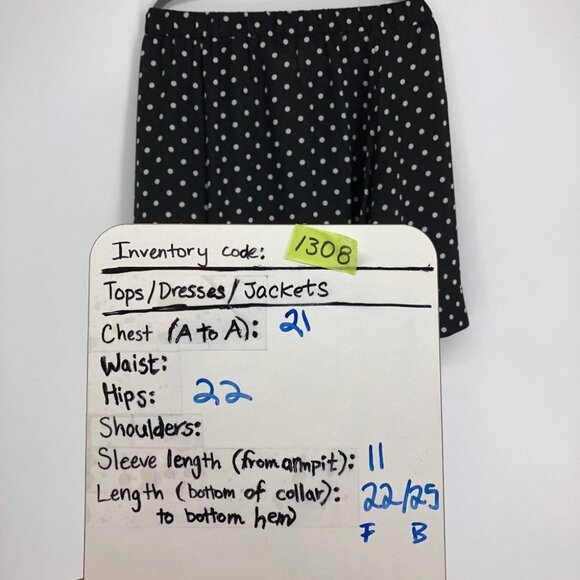 Inventory code: 1308
Tops/Dresses/Jackets
Chest (A to A): 21
Waist:
Hips: 22
Shoulders:
Sleeve length (from armpit): 11
Length (bottom of collar): 22/25
to bottom hem)
F B